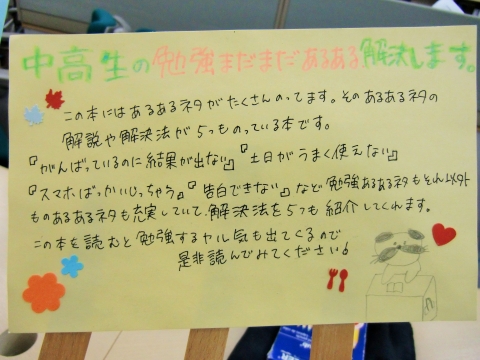 中高生の勉強まだまだあるある解決します。
この本にはあるあるネタがたくさんのってます。そのあるあるネタの
解説や解決法が5つものっている本です。
『がんばっているのに結果が出ない』『土日がうまく使えない』
『スマホばっかいじっちゃう。』『告白できない』など勉強あるあるネタもそれ以外の
ものあるあるネタも充実していて、解決法を5つも紹介してくれます。
この本を読むと勉強するヤル気も出てくるので
是非読んでみてください!